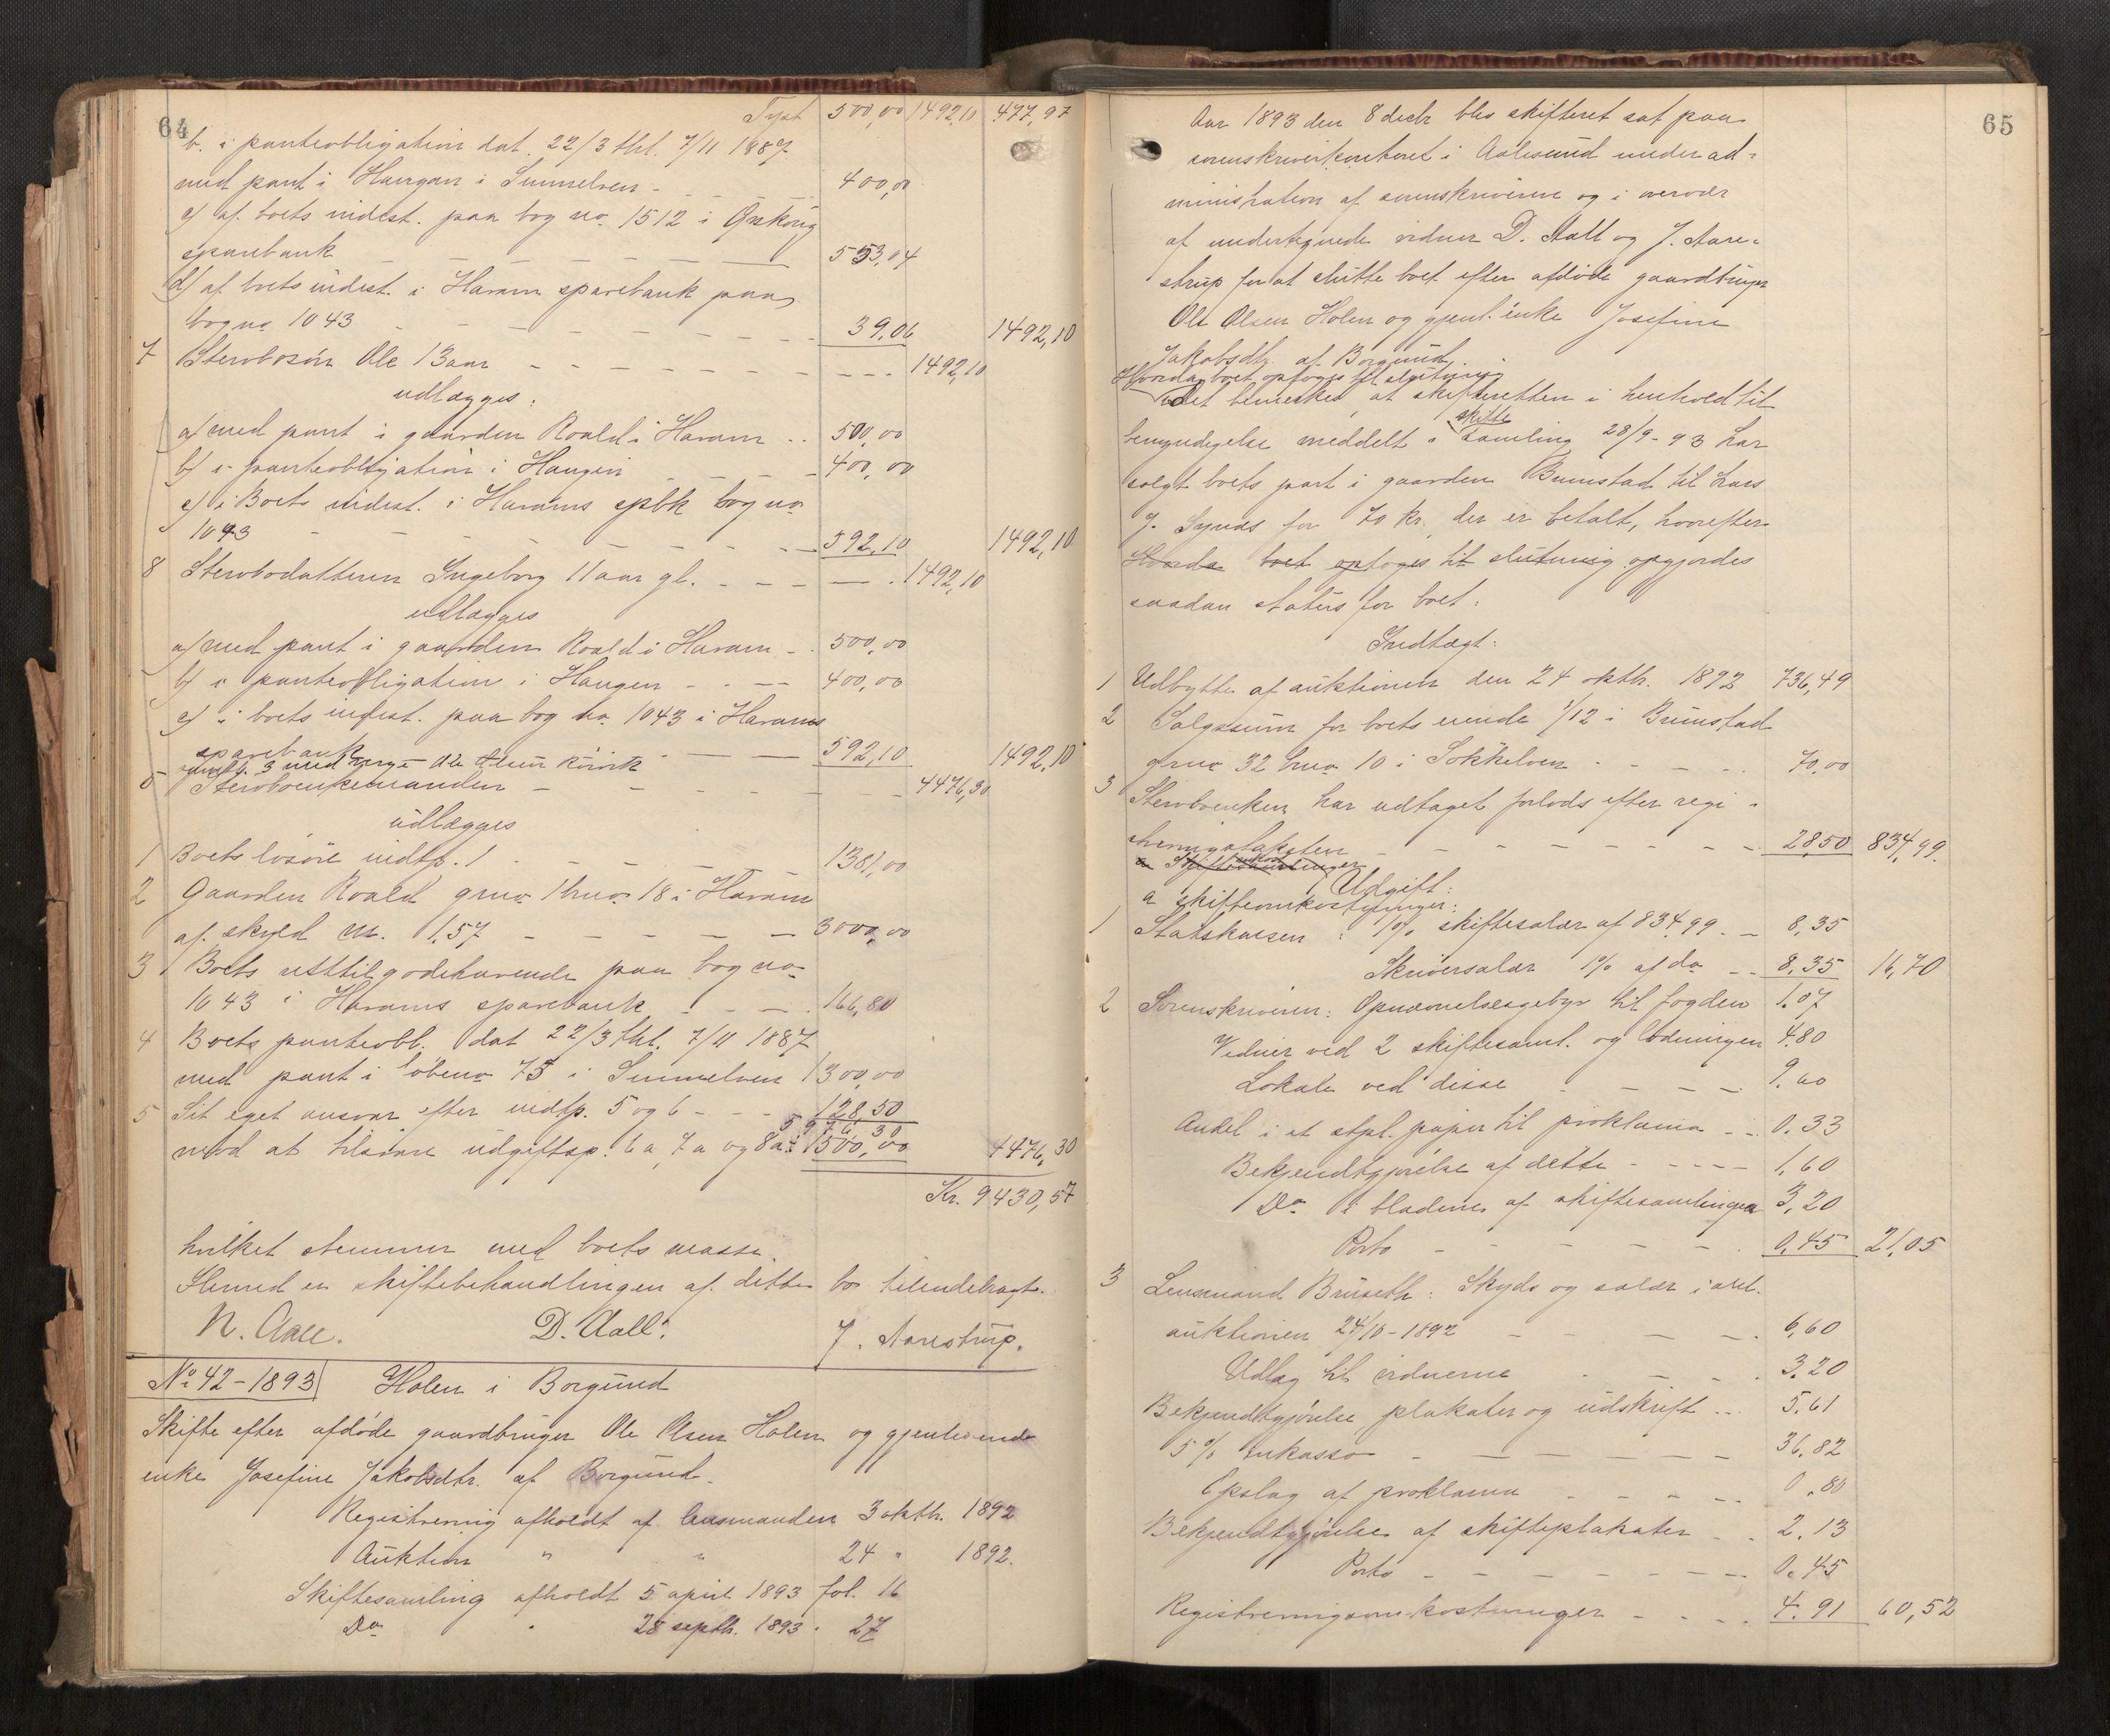 64
Tyst 500,00 1492,10 477,97
b. i panteobligation dat. 22/3 thl. 7/11 1887
med pant i Haugen i Sunnelven - 400,00
c) af boets indest. paa bog no. 1512 i Ørskoug
sparebank 553,04
d) af boets indest. i Haram sparebank paa
bog no. 1043 39,06 1492,10
7 Stervbosøn Ole 13 aar 1492,10
udlægges:
a) med pant i gaarden Roald i Haram 500,00
b) i panteobligation i Haugen 400,00
c) i Boets indest. i Harams spbk bog no.
1043 592,10 1492,10
8 Stervbodatteren Ingeborg 11 aar gl. 1492,10
udlægges
a) med pant i gaarden Roald i Haram 500,00
b) i panteobligation i Haugen 400,00
c) i boets indest. paa bog no. 1043 i Harams
sparebank 592,10 1492,10
Stervboenkemanden 4476,30
udlægges
1 Boets løsøre indtp. 1 1381,00
2 Gaarden Roald gno. 1 bno. 18 i Haram
af skyld m. 1,57 3000,00
3 Boets resttilgodehavende paa bog no.
1043 i Harams sparebank 166,80
4 Boets panteobl. dat 22/3 thl. 7/11 1887
med pant i løbeno 75 i Sunnelven 1300,00
5 Sit eget ansvar efter indtp. 5 og 6 128,50
5976,30
mod at tilsvare udgiftsp. 6a, 7a og 8a: 1500,00 4476,30
Kr. 9430,57
hvilket stemmer med boets masse.
Hermed er skiftebehandlingen af dette bo tilendebragt.
N. Aall. D. Aall. J. Aarestrup.
No 42 - 1893 Holen i Borgund
Skifte efter afdøde gaardbruger Ole Olsen Holen og gjenlevende
enke Josefine Jakobsdtr. af Borgund.
Registrering afholdt af lensmanden 3 oktbr. 1892
Auktion " " 24 " 1892.
Skiftesamling afholdt 5 april 1893 fol. 16
Do " 28 septbr. 1893 " 27
65
Aar 1893 den 8 decbr blev skifteret sat paa
sorenskriverkontoret i Aalesund under ad-
ministration af sorenskriveren og i overvær
af undertegnede vidner D. Aall og J. Aare-
strup for at slutte boet efter afdøde gaardbruger
Ole Olsen Holen og gjenl. enke Josefine
Jakobsdtr. af Borgund.
Hvorda boet optoges til slutning
Det bemerkes, at skifteretten i henhold til
bemyndigelse meddelt i skiftesamling 28/9-93 har
solgt boets part i gaarden Brunstad til Lars
J. Synes for 70 kr, der er betalt, hvorefter
Hvorda boet optoges til slutning opgjordes
saadan status for boet:
Indtægt:
1 Udbytte af auktionen den 24 oktbr. 1892 736,49
2 Salgssum for boets eiende 1/12 i Brunstad
gno 32 bno 10 i Søkkelven 70,00
3 Stervboenken har udtaget forlods efter regi-
streringstaksten 28,50 834,99.
Udgift:
a skifteomkostninger:
1 Statskassen: 1% skiftesalær af 834,99 8,35
Skriversalær 1% af do 8,35 16,70
2 Sorenskriveren: Opnævnelsesgebyr til fogden 1.07
Vidner ved 2 skiftesaml. og lodningen 4.80
Lokale ved disse 9.60
Andel i et stpl. papir til proklama 0.33
Bekjendtgjørelse af dette 1,60
Do i bladene af skiftesamlingen 3,20
Porto 0,45 21,05
3 Lensmand Bruseth: Skyds og salær i anl.
auktionen 24/10-1892 6,60
Udlæg til vidnerne 3.20
Bekjendtgjørelse, plakater og udskrift 5.61
5% inkasso 36,82
Opslag af proklama 0,80
Bekjendtgjørelse af skifteplakater 2.13
Porto 0.45
Registreringsomkostninger 4.91 60,52